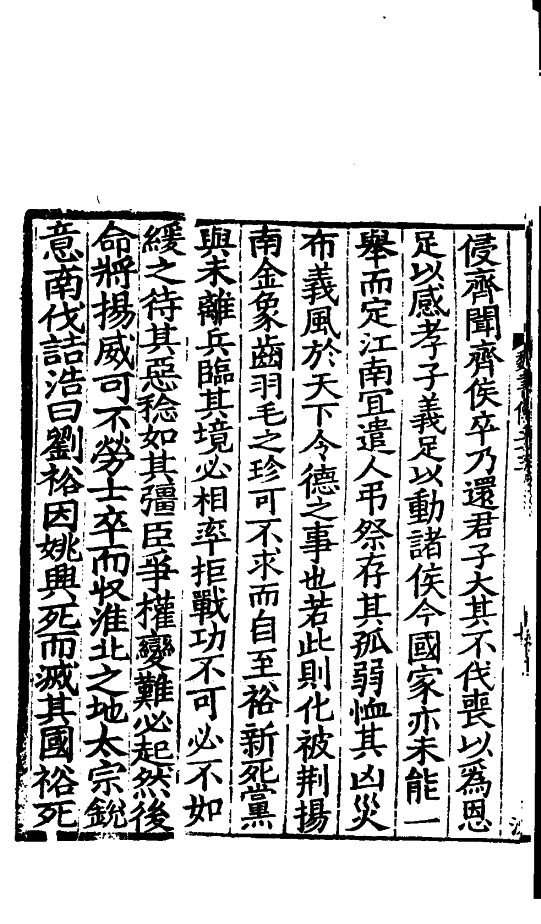 侵齊聞齊侯卒乃還君子大其不伐喪以爲恩
足以感孝子義足以動諸侯今國家亦未能一
舉而定江南宜遣人弔祭存其孤弱恤其凶災
布義風於天下令德之事也若此則化被荆揚
南金象齒羽毛之珍可不求而自至裕新死黨
與未離兵臨其境必相率拒戰功不可必不如
緩之待其惡稔如其彊臣爭權變難必起然後
命將揚威可不勞士卒而收淮北之地太宗銳
意南伐詰浩曰劉裕因姚興死而滅其國裕死